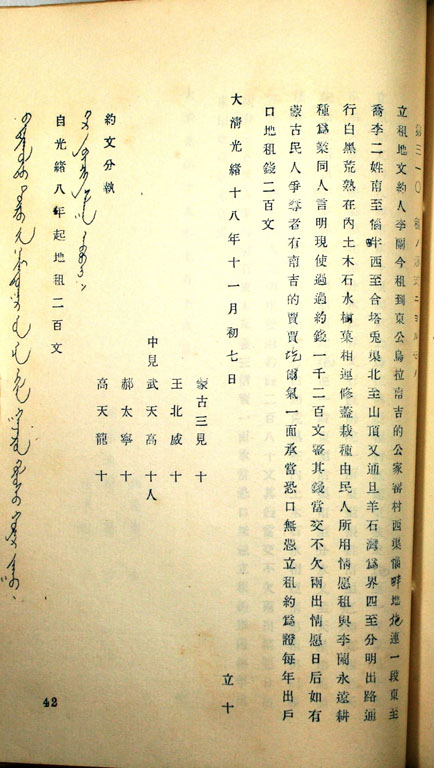 立租地文約人李關今租到東公烏拉南吉的公家窰村西渠𠋫畔地地連一段東至
喬李二姓南至𠋫畔西至合塔兎渠北至山頂又通旦羊石灣爲界四至分明出路通
行白黑荒熟在內土木石水樹菓相連修蓋栽種由民人所用情愿租與李關永遠耕
種爲業同人言明現使過過約錢一千二百文整其錢當交不欠兩出情愿日後如有
蒙古民人爭奪者有南吉的賈賈圪爾氣一面承當恐口無憑立租約爲證每年出戶
口地租錢二百文
大清光緒十八年十一月初七日 立十
蒙古三見十
王北威十
中見武天高十人
郝太寧十
高天龍十
約文分執
自光緒八年起地租二百文
42